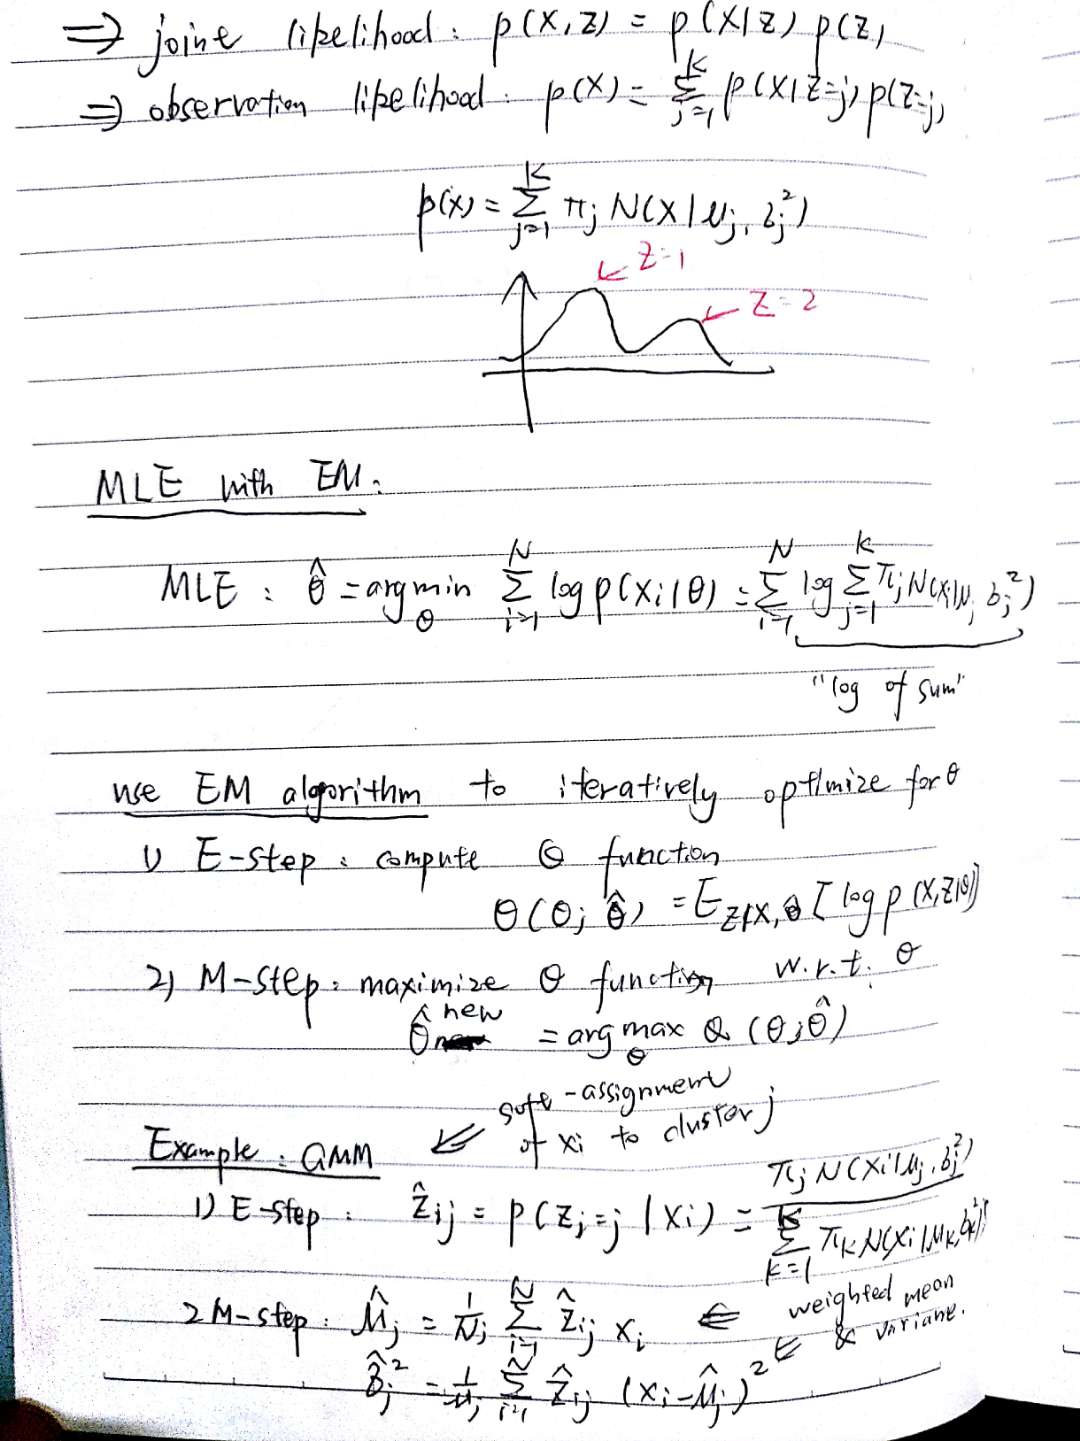 ⇒ joint likelihood: p(x,z) = p(x|z) p(z)
⇒ observation likelihood: p(x) = Σ_{j=1}^{K} p(x|z=j) p(z=j)
p(x) = Σ_{j=1}^{K} π_j N(x|μ_j, σ_j²)
z=1
z=2
MLE with EM:
MLE: θ̂ = argmin_θ Σ_{i=1}^{N} log p(x_i|θ) = Σ_{i=1}^{N} log Σ_{j=1}^{K} π_j N(x_i|μ_j, σ_j²)
"log of sum"
use EM algorithm to iteratively optimize for θ
1) E-step: compute Q function
Q(θ; θ̂) = E_{z|x,θ̂} [log p(x,z|θ)]
2) M-step: maximize Q function w.r.t. θ
θ̂^{new} = argmax_θ Q(θ; θ̂)
soft-assignment
of x_i to cluster j
Example: GMM
1) E-step: ẑ_ij = p(z_i=j|x_i) = π_j N(x_i|μ_j, σ_j²) / Σ_{k=1}^{K} π_k N(x_i|μ_k, σ_k²)
2 M-step: μ̂_j = 1/N_j Σ_{i=1}^{N} ẑ_ij x_i ⇐ weighted mean
& variane.
σ̂_j² = 1/N_j Σ_{i=1}^{N} ẑ_ij (x_i-μ̂_j)²